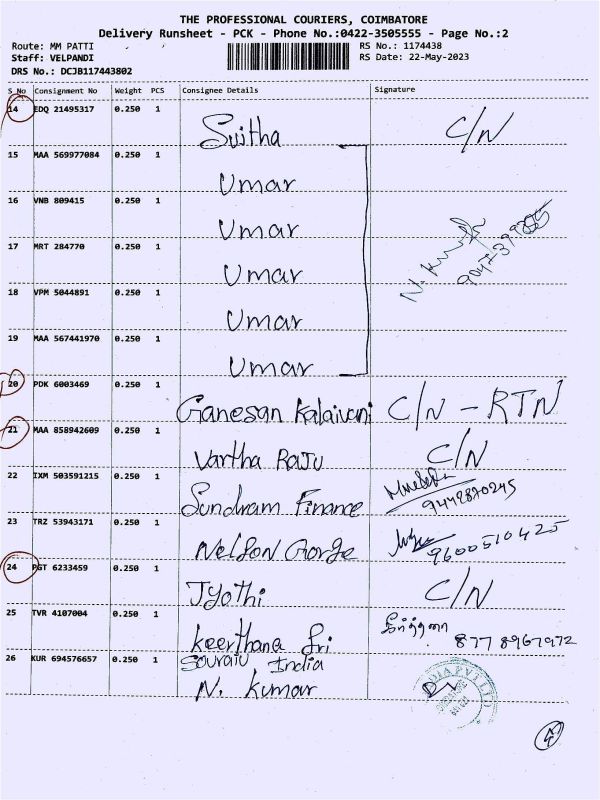 THE PROFESSIONAL COURIERS, COIMBATORE
Delivery Runsheet - PCK - Phone No.:0422-3505555 - Page No.:2
Route: MM PATTI
RS No.: 1174438
Staff: VELPANDI
RS Date: 22-May-2023
DRS No.: DCJB117443802
S No Consignment No Weight PCS Consignee Details Signature
14 EDQ 21495317 0.250 1 Sujtha C/N
15 MAA 569977084 0.250 1 Umar
16 VNB 809415 0.250 1 Umar
17 MRT 284770 0.250 1 Umar
18 VPM 5044891 0.250 1 Umar
19 MAA 567441970 0.250 1 Umar
20 PDK 6003469 0.250 1 Ganesan Kalaivani C/N - RTN
21 MAA 858942609 0.250 1 Vartha Raju C/N
22 IXM 503591215 0.250 1 Sundram Finance
23 TRZ 53943171 0.250 1 Nelson Gorge 9600510425
24 PGT 6233459 0.250 1 Jyothi C/N
25 TVR 4107004 0.250 1 Keerthana Sri கீர்த்தனா 877 8967972
26 KUR 694576657 0.250 1 India
N. Kumar